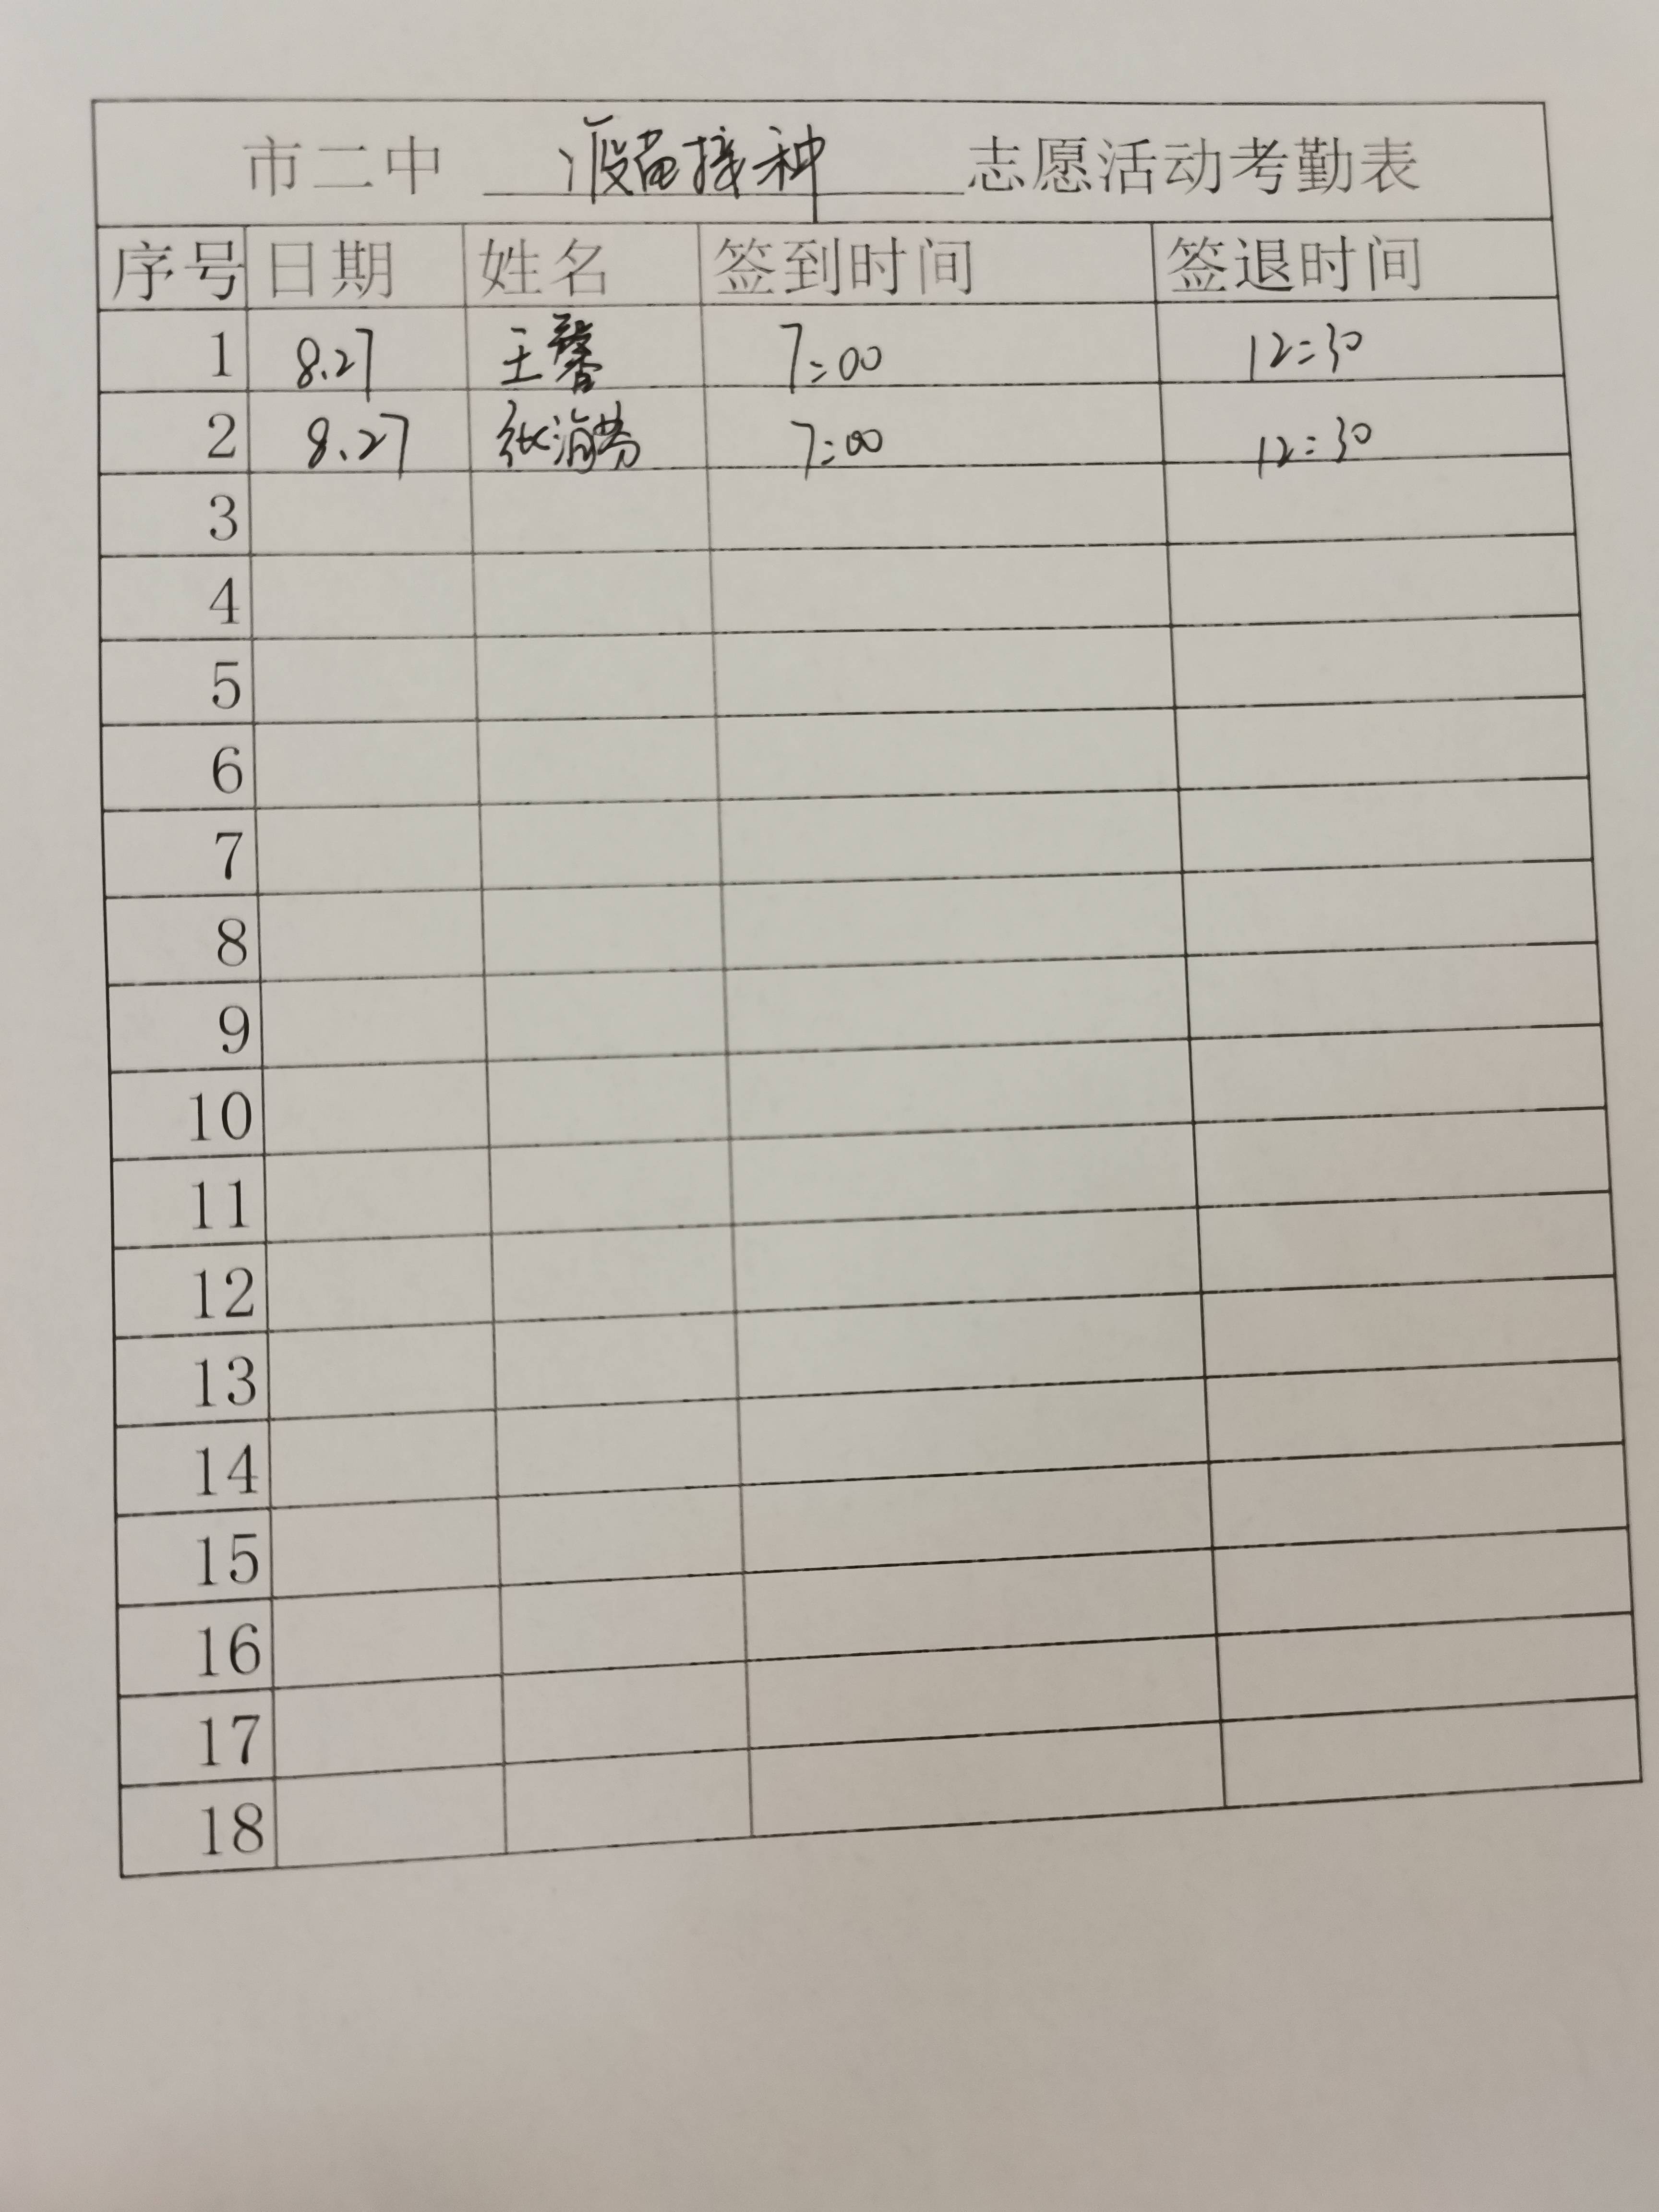 市二中 疫苗接种 志愿活动考勤表
序号 日期 姓名 签到时间 签退时间
1 8.27 王馨 7:00 12:30
2 8.27 张海芳 7:00 12:30
3
4
5
6
7
8
9
10
11
12
13
14
15
16
17
18